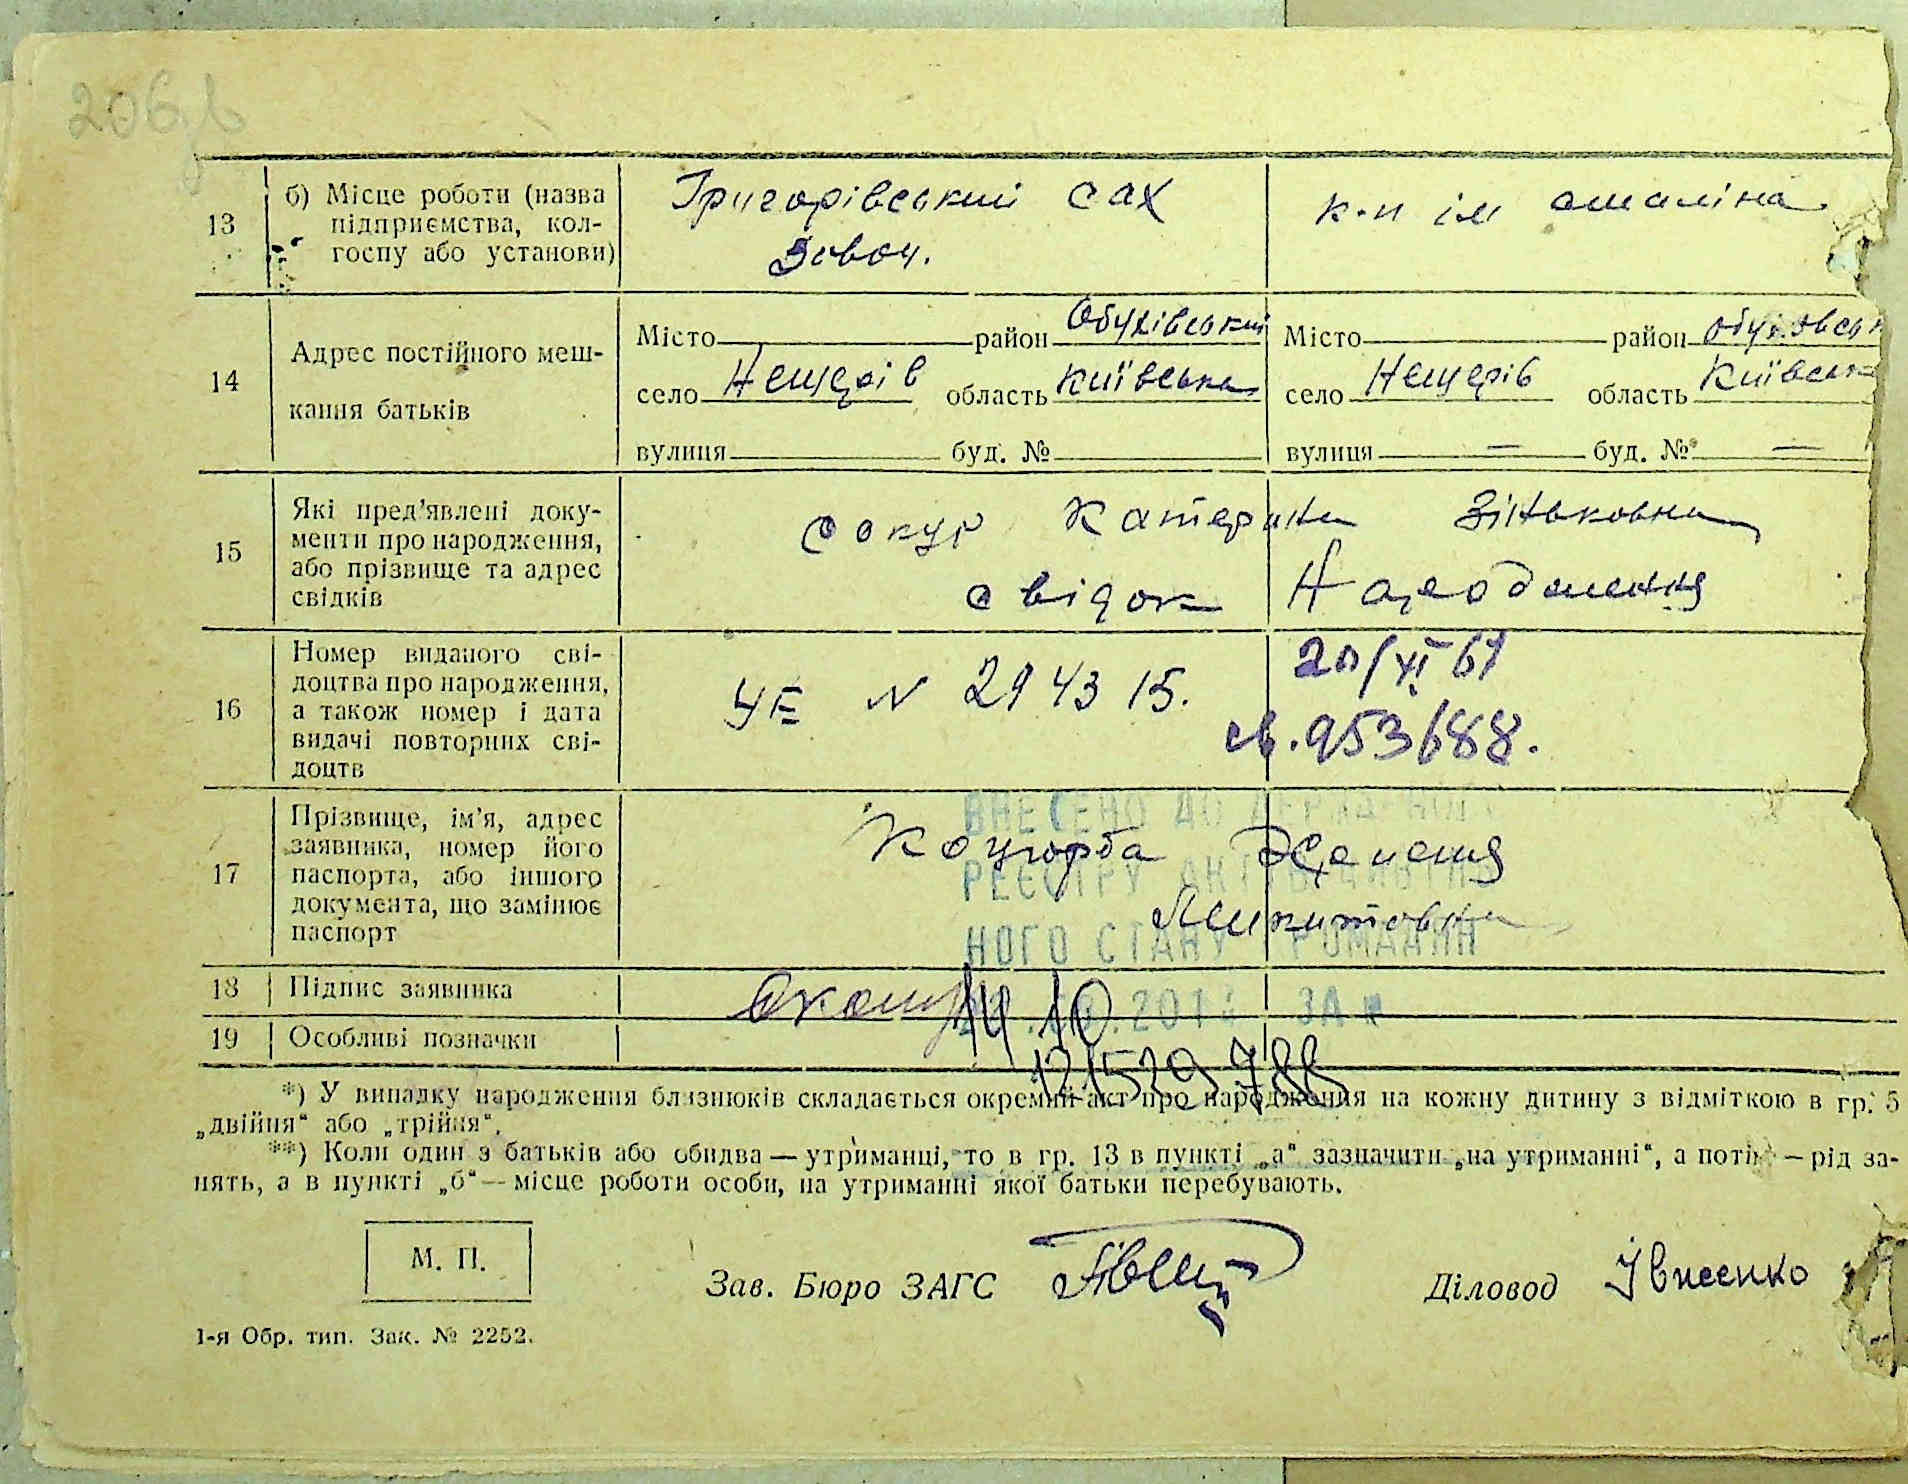 206
13
б) Місце роботи (назва
підприємства, кол-
госпу або установи)
Григорівський сах
Завод.
к-п ім сталіна
14
Адрес постійного меш-
кання батьків
Місто район Обухівський
село Нещерів область Київська
вулиця буд. №
Місто район обуховськ
село Нещерів область Київська
вулиця — буд. № —
15
Які пред’явлені доку-
менти про народження,
або прізвище та адрес
свідків
Сокур Катерина Зіньковна
свідок Народження
16
Номер виданого сві-
доцтва про народження,
а також номер і дата
видачі повторних сві-
доцтв
УЕ N 294315.
20/XI 61
св. 953688.
17
Прізвище, ім’я, адрес
заявника, номер його
паспорта, або іншого
документа, що замінює
паспорт
Коцюрба
Микитовна
ВНЕСЕНО ДО ДЕРЖАВНОГО
РЕЄСТРУ АКТІВ ЦИВІЛЬ
НОГО СТАНУ ГРОМАДЯН
201 ЗА №
18
Підпис заявника
14 10
19
Особливі позначки
*) У випадку народження близнюків складається окремий акт про народження на кожну дитину з відміткою в гр. 5
„двійня“ або „трійня“.
**) Коли один з батьків або обидва — утриманці, то в гр. 13 в пункті „а“ зазначити „на утриманні“, а потім — рід за-
нять, а в пункті „б“ — місце роботи особи, на утриманні якої батьки перебувають.
М. П.
Зав. Бюро ЗАГС
Діловод Івнеенко
1-я Обр. тип. Зак. № 2252.